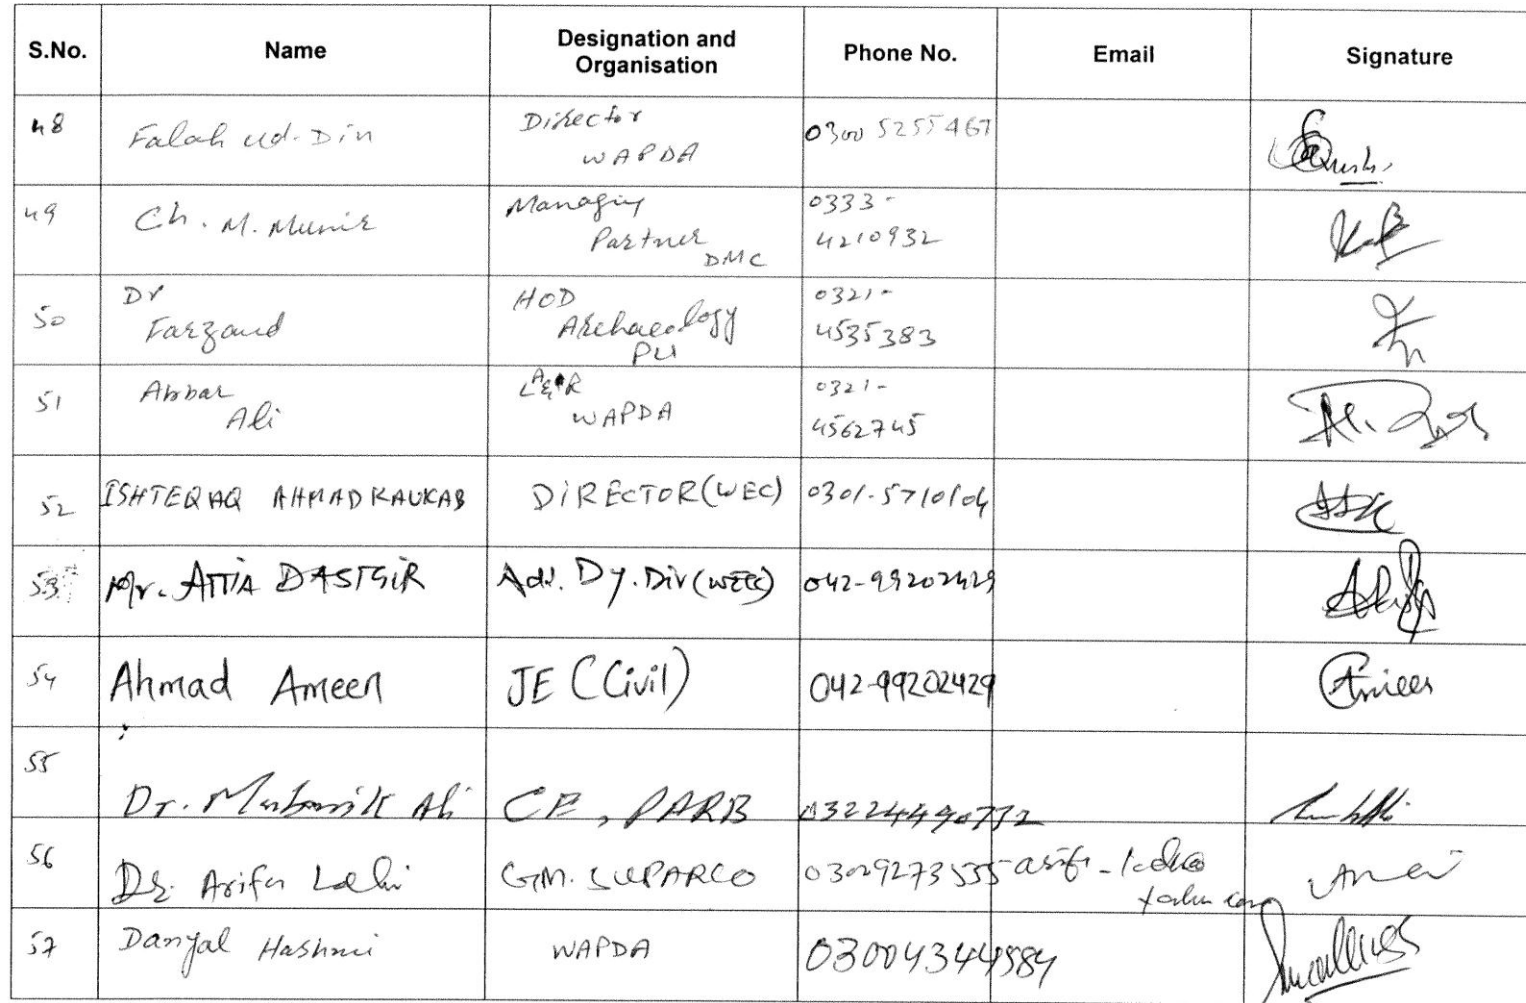 S.No. Name Designation and Organisation Phone No. Email Signature
48 Falah ud-Din Director WAPDA 0300 5255467
49 Ch. M. Munir Managing Partner DMC 0333-4210932
50 Dr Farzand HOD Archaeology PU 0321-4535383
51 Abbar Ali LA&R WAPDA 0321-4562745
52 ISHTEQAQ AHMAD KAUKAB DIRECTOR (WEC) 0301-5710104
53 Mr. ATTA DASTGIR Ad. Dy. Dir (WEC) 042-99202429
54 Ahmad Ameen JE (Civil) 042-99202429 Ameen
55 Dr. Mubarik Ali CE, PARB 03224490772
56 Dr. Arifa Lodhi G.M. SUPARCO 03009273555
57 Danyal Hashmi WAPDA 03004344984